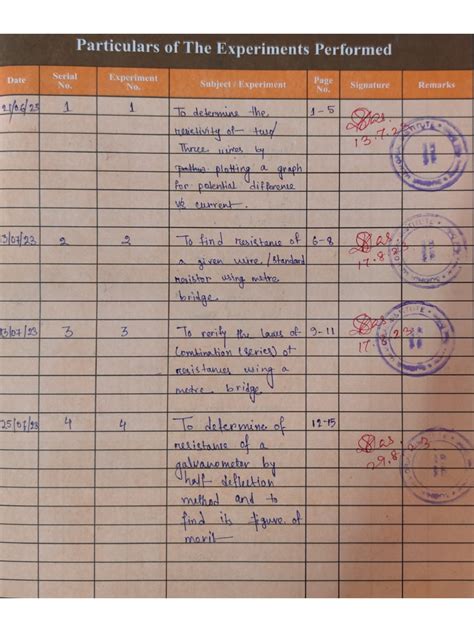 Particulars of The Experiments Performed
Date Serial No. Experiment No. Subject / Experiment Page No. Signature Remarks
21/06/23 1 1 To determine the 1-5
resistivity of two/
Three wires by
plotting a graph
for potential difference
vs current.
13.7.23
13/07/23 2 2 To find resistance of 6-8
a given wire / standard
resistor using metre
bridge.
17.8.23
13/07/23 3 3 To verify the laws of 9-11
combination (series) of
resistances using a
metre bridge.
17.8.23
25/07/23 4 4 To determine of 12-15
resistance of a
galvanometer by
half deflection
method and to
find its figure of
merit
29.8.23